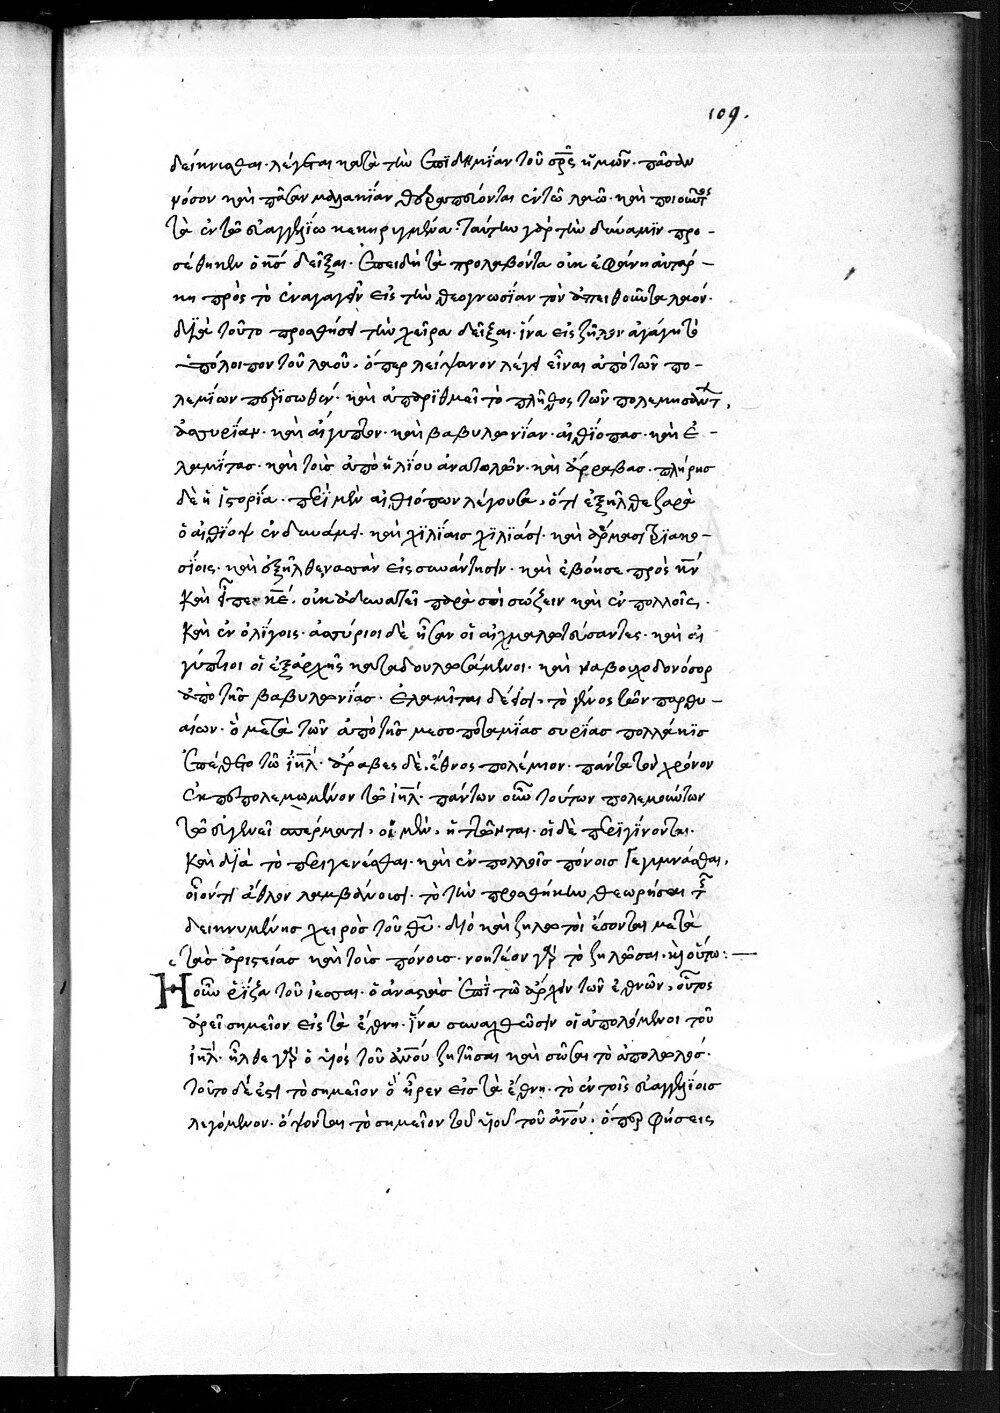 109.
δείκνυσθαι· λέγεται κατὰ τὴν ἐπιδημίαν τοῦ σρ̅ς ἡμῶν· πᾶσαν
νόσον καὶ πᾶσαν μαλακίαν θεραπεύονται ἐν τῶ λαῶ· καὶ ποιοῦντος
τὰ ἐν τῶ εὐαγγελίω κεκηρυγμένα· ταύτην γὰρ τὴν δύναμιν προ-
σέθηκεν ὁ κ̅ς δεῖξαι· ἐπειδὴ τὰ προλαβόντα οὐκ ἐφάνη αὐτάρ-
κη πρὸς τὸ ἐναγαγεῖν εἰς τὴν θεογνωσίαν τὸν ἀπειθοῦντα λαόν·
διὰ τοῦτο προσθήσει τὴν χεῖρα δεῖξαι· ἵνα εἰς ζῆλον ἀγάγη τὸ
ὑπόλοιπον τοῦ λαοῦ, ὅπερ λείψανον λέγει εἶναι ἀπὸ τῶν πο-
λεμίων περισωθέν· καὶ ἀπαριθμεῖ τὸ πλῆθος τῶν πολεμησάντ,
ἀσσυρίαν· καὶ αἴγυπτον· καὶ βαβυλωνίαν· αἰθίοπας· καὶ ἐ-
λαμίτας· καὶ τοὺς ἀπὸ ἡλίου ἀνατολῶν· καὶ ἄρραβας· πλήρης
δὲ ἡ ἱστορία· περὶ μὲν αἰθιόπων λέγουσα, ὅτι ἐξῆλθε ζαρὰ
ὁ αἰθίοψ ἐν δυνάμει· καὶ χιλίαις χιλιάσι· καὶ ἅρμασι τριακο-
σίοις· καὶ ἐξῆλθεν ἀσὰν εἰς συνάντησιν· καὶ ἐβόησε πρὸς κ̅ν
καὶ εἶπε κ̅ε· οὐκ ἀδυνατεῖ παρὰ σοὶ σώζειν καὶ ἐν πολλοῖς·
καὶ ἐν ὀλίγοις· ἀσσύριοι δὲ ἦσαν οἱ αἰχμαλωτεύσαντες· καὶ αἰ
γύπτιοι οἱ ἐξαρχῆς καταδουλωσάμενοι· καὶ ναβουχοδονόσορ
ἀπὸ τῆς βαβυλωνίας· ἐλαμῖται δέ εἰσι, τὸ γένος τῶν παρθυ-
αίων· ὃ μετὰ τῶν ἀπὸ τῆς μεσοποταμίας συρίας πολλάκις
ἐπέθετο τῶ ἰη̅λ· ἄραβες δὲ, ἔθνος πολέμιον· πάντα τὸν χρόνον
ἐκπεπολεμωμένον τῶ ἰη̅λ· πάντων οὖν τούτων πολεμούντων
τῶ εὐγενεῖ σπέρματι, οἱ μὲν, ἡττῶνται· οἱ δὲ περιγίνονται·
καὶ διὰ τὸ περιγενέσθαι· καὶ ἐν πολλοῖς πόνοις γεγυμνάσθαι,
οἱονεὶ ἆθλον λαμβάνουσι· τὸ τὴν προσθήκην θεωρῆσαι τῆς
δεικνυμένης χειρὸς τοῦ θ̅υ· διὸ καὶ ζηλωτοὶ ἔσονται μετὰ
τὰς ἀριστείας καὶ τοὺς πόνους· νοητέον γὰρ τὸ ζηλῶσαι, καὶ οὕτω:—
Η οὖν ῥίζα τοῦ ἰεσσαι· ὁ ἀναστὰς ἐπὶ τῶ ἄρχειν τῶν ἐθνῶν, οὗτος
ἀρεῖ σημεῖον εἰς τὰ ἔθνη· ἵνα συναχθῶσιν οἱ ἀπολόμενοι τοῦ
ἰη̅λ· ἦλθε γὰρ ὁ υἱὸς τοῦ ἀν̅ου ζητῆσαι καὶ σῶσαι τὸ ἀπολωλός·
τοῦτο δέ ἐστι τὸ σημεῖον ὃ ἦρεν εἰς τὰ ἔθνη· τὸ ἐν τοῖς εὐαγγελίοις
λεγόμενον· ὄψονται τὸ σημεῖον τοῦ υἱοῦ τοῦ ἀν̅ου· ὅπερ φήσεις